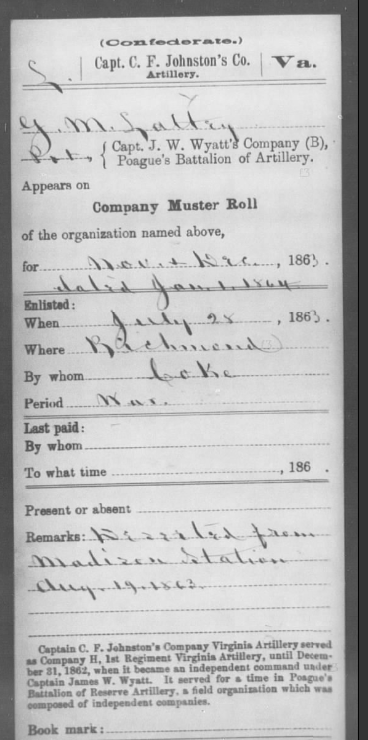 (Confederate.)
L. | Capt. C. F. Johnston's Co. Artillery. | Va.
G. M. Lattry
Pvt., { Capt. J. W. Wyatt's Company (B),
Poague's Battalion of Artillery.
Appears on
Company Muster Roll
of the organization named above,
for Nov. & Dec., 1863.
dated Jan. 1, 1864
Enlisted:
When July 28, 1863.
Where Richmond
By whom Coke
Period War.
Last paid:
By whom
To what time , 186 .
Present or absent
Remarks: Deserted from
Madison Station
Aug. 19. 1863.
Captain C. F. Johnston's Company Virginia Artillery served
as Company H, 1st Regiment Virginia Artillery, until Decem-
ber 31, 1862, when it became an independent command under
Captain James W. Wyatt. It served for a time in Poague's
Battalion of Reserve Artillery, a field organization which was
composed of independent companies.
Book mark: